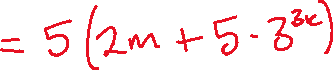 = 5(2m + 5 · 3^{3k})